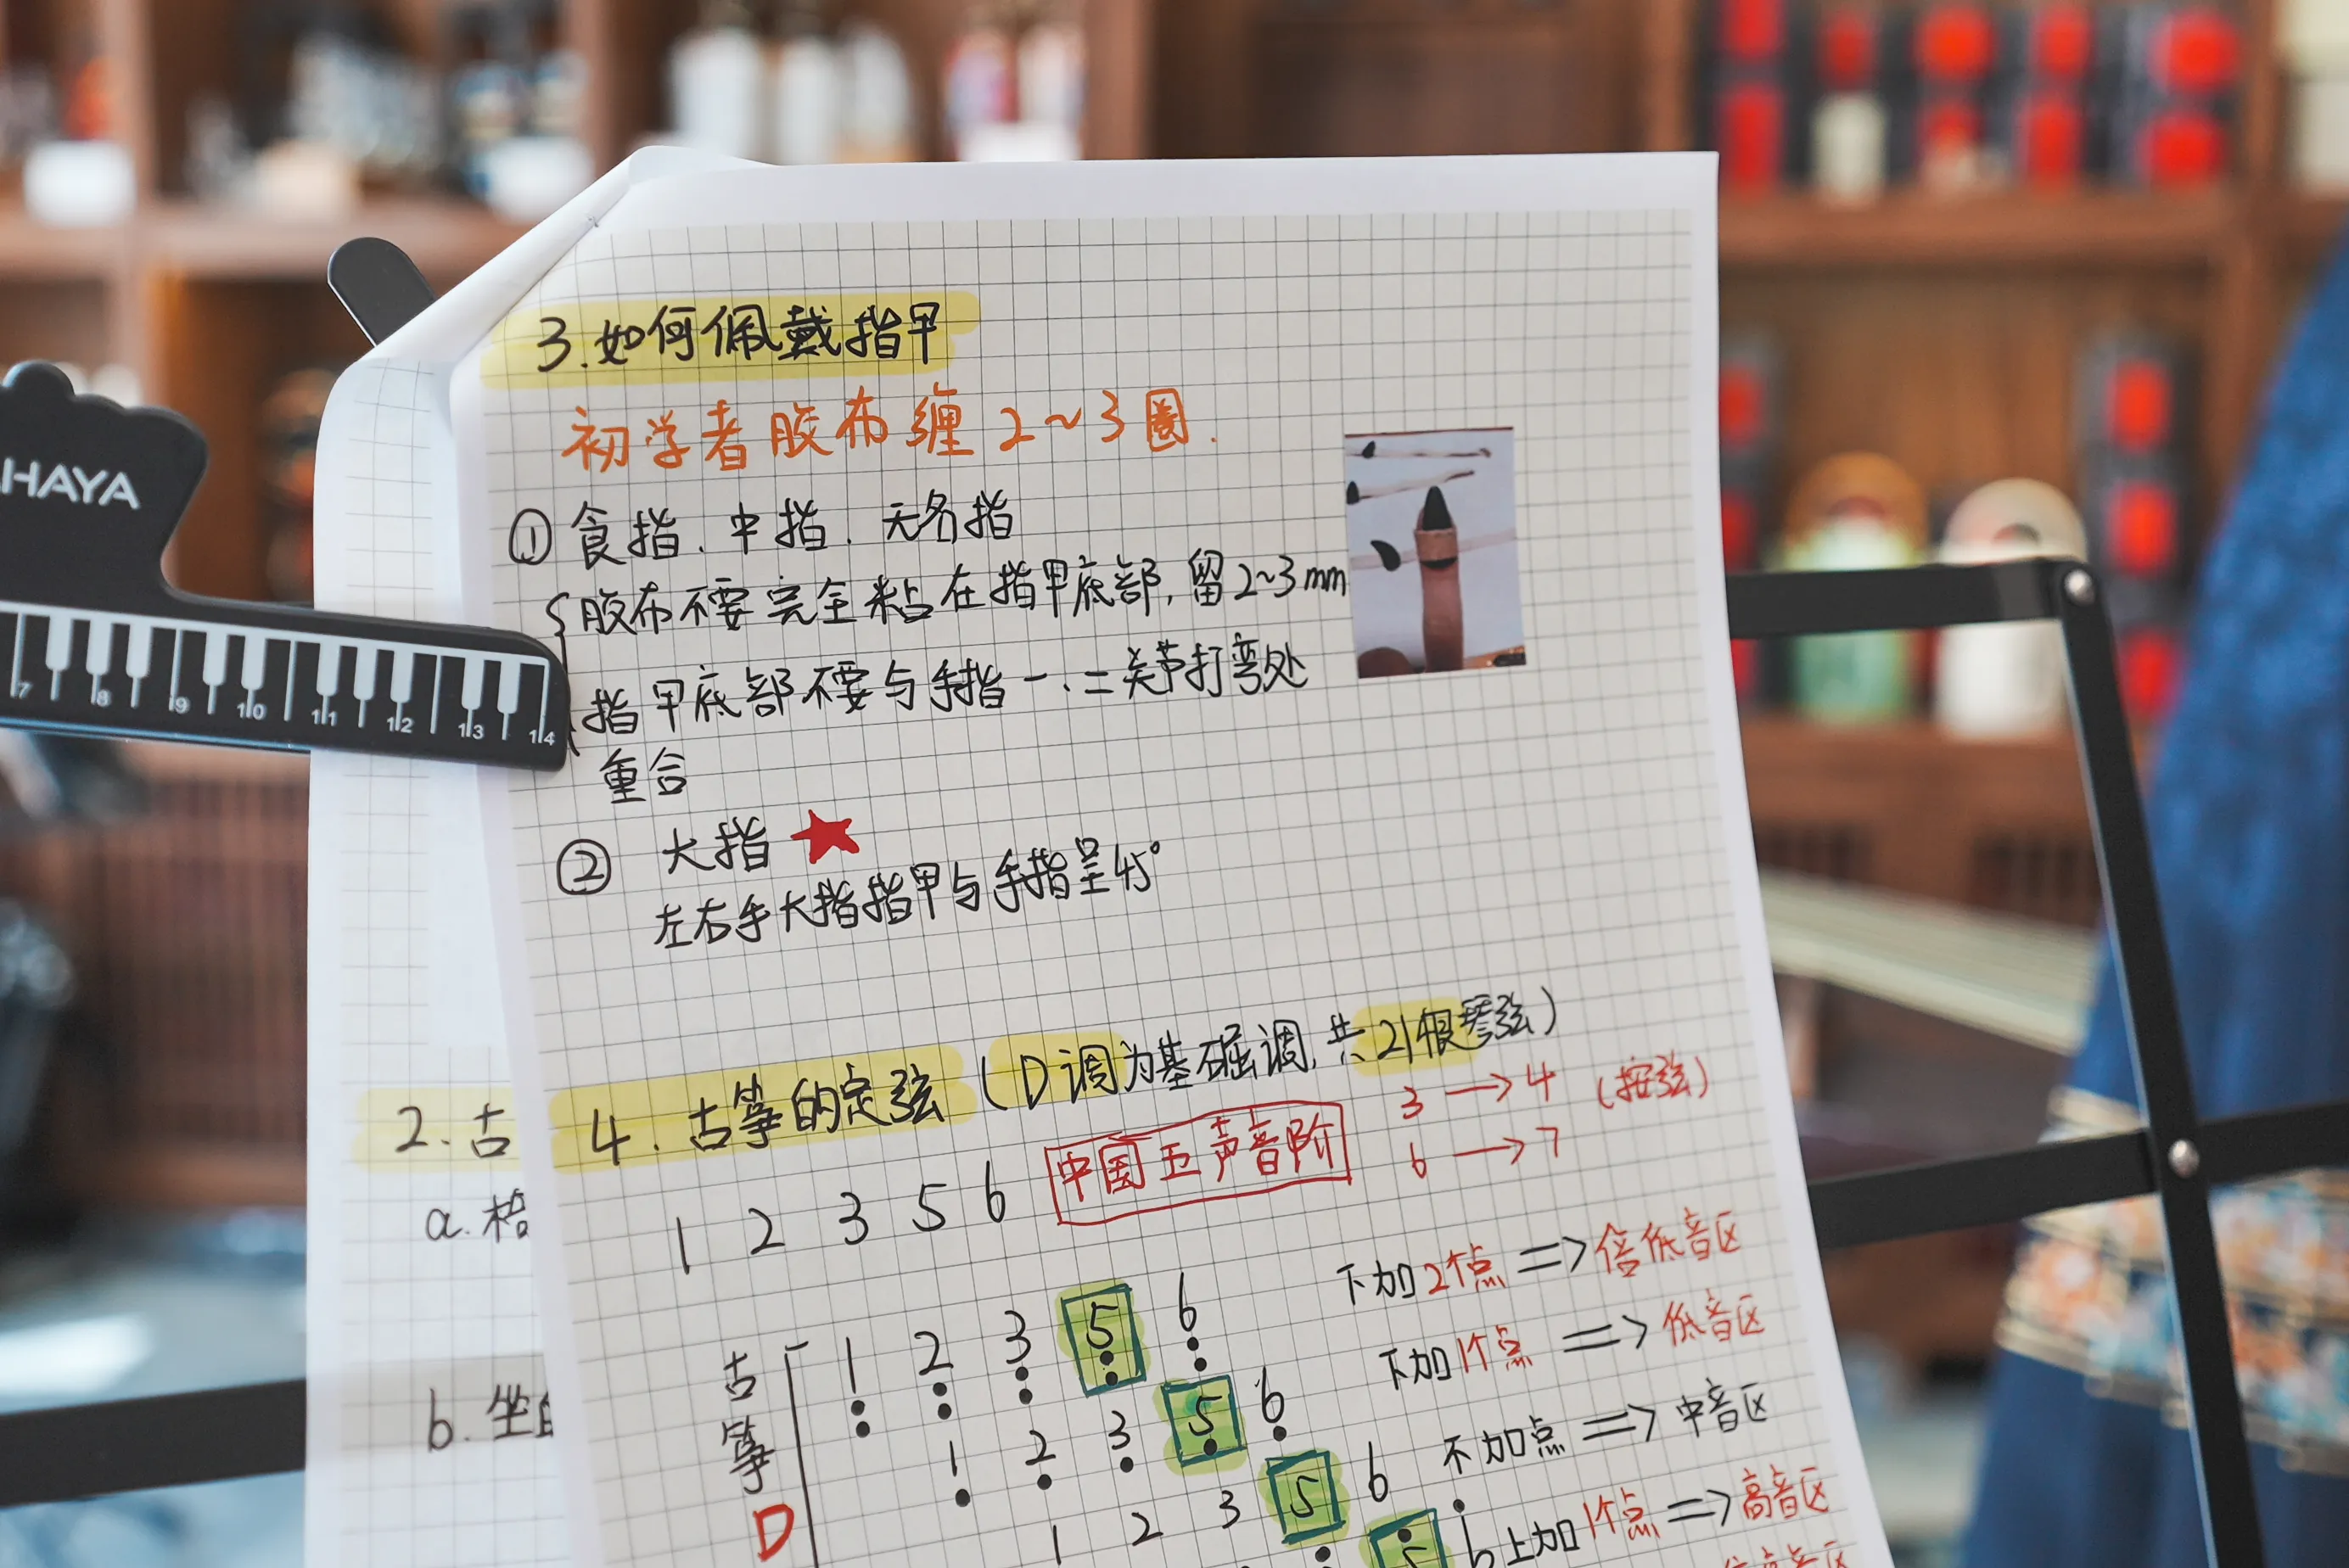 3.如何佩戴指甲
初学者胶布缠2~3圈.
①食指、中指、无名指
胶布不要完全粘在指甲底部,留2~3mm
指甲底部不要与手指一、二关节打弯处
重合
② 大指
左右手大指指甲与手指呈45°
4.古筝的定弦(D调为基础调,共21根琴弦)
3→4 (按弦)
6→7
1 2 3 5 6 中国五声音阶
下加2个点=>倍低音区
下加1个点=>低音区
不加点=>中音区
上加1个点=>高音区
古筝D
1 2 3 5 6
1 2 3 5 6
1 2 3 5 6
5 6
2.古
a.梧
b.坐
HAYA
7 8 9 10 11 12 13 14